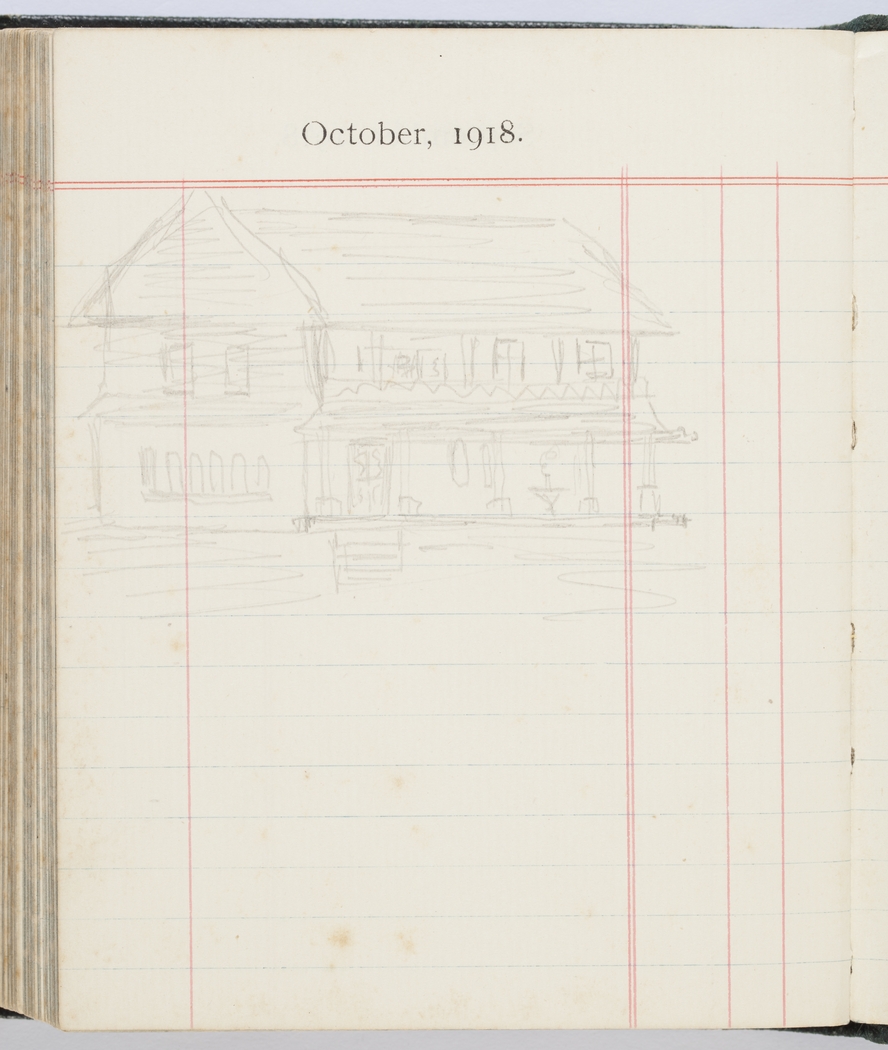 October, 1918.